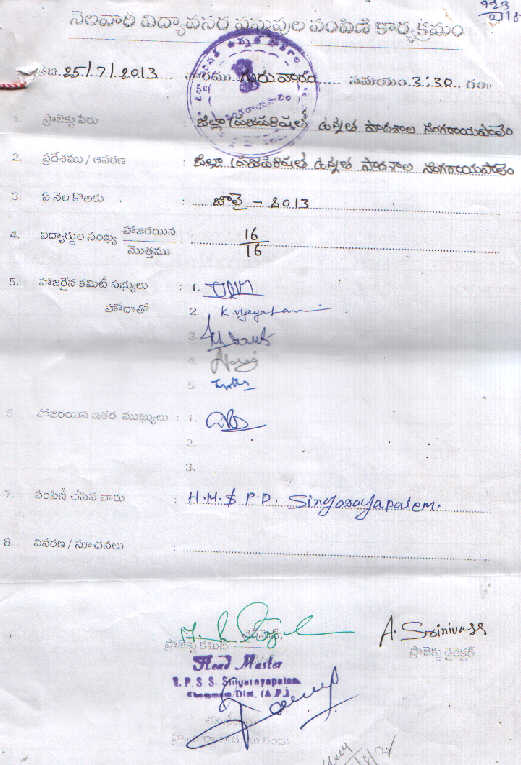 నెలవారి విద్యావసర వస్తువుల పంపిణీ కార్యక్రమం
తేది. 25/7/2013 వారము గురువారం సమయం 3:30 గం॥
1. ప్రాజెక్టు పేరు జిల్లా ప్రజాపరిషత్ ఉన్నత పాఠశాల సింగరాయపాలెం
2. ప్రదేశము / ఆవరణ : జిల్లా ప్రజాపరిషత్ ఉన్నత పాఠశాల సింగరాయపాలెం
3. ఏ నెల కొరకు : జూలై - 2013
4. విద్యార్థుల సంఖ్య హాజరయిన : 16
మొత్తము 16
5. హాజరైన కమిటీ సభ్యులు : 1.
హోదాతో 2. K Vijayalaxmi
3.
4.
5.
6. హాజరయిన ఇతర ముఖ్యులు : 1.
2.
3.
7. పంపిణీ చేసిన వారు : H.M. & P.D. Singarayapalem.
8. వివరణ / సూచనలు :
A. Srinivas
ప్రాజెక్టు కమిటీ ప్రాజెక్టు డైరెక్టర్
Head Master
Z.P.S.S. Singarayapalem
Khammam Dist. (A.P.)